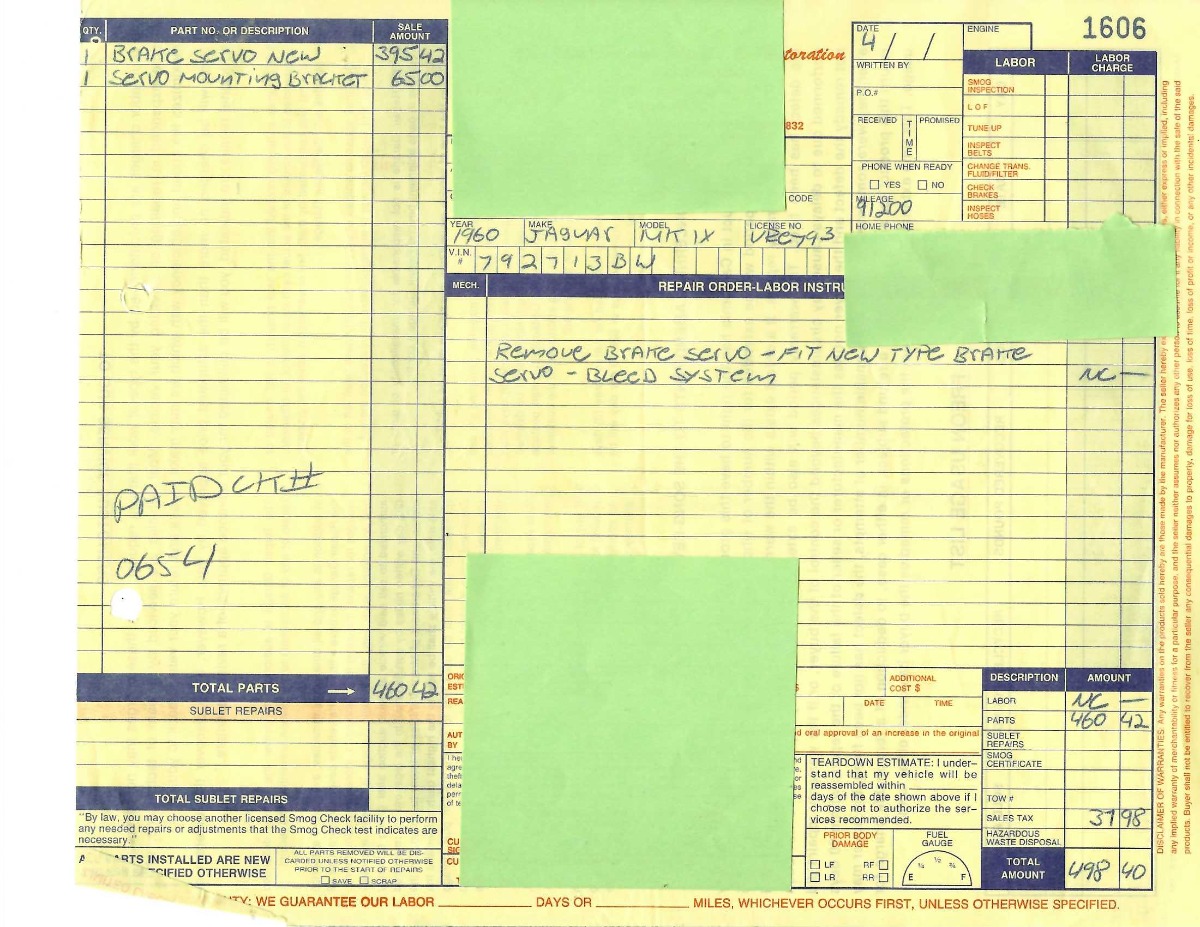 QTY. PART NO. OR DESCRIPTION SALE AMOUNT
1 BRAKE SERVO NEW 395 42
1 SERVO MOUNTING BRACKET 65 00
PAID CK#
0654
TOTAL PARTS 460 42
SUBLET REPAIRS
TOTAL SUBLET REPAIRS
"By law, you may choose another licensed Smog Check facility to perform
any needed repairs or adjustments that the Smog Check test indicates are
necessary."
PARTS INSTALLED ARE NEW
SPECIFIED OTHERWISE
ALL PARTS REMOVED WILL BE DIS-
CARDED UNLESS NOTIFIED OTHERWISE
PRIOR TO THE START OF REPAIRS
SAVE SCRAP
toration
832
CODE
DATE 4/ /
WRITTEN BY
P.O.#
RECEIVED TIME PROMISED
PHONE WHEN READY
YES NO
MILEAGE
91200
HOME PHONE
ENGINE
1606
LABOR LABOR CHARGE
SMOG INSPECTION
L O F
TUNE-UP
INSPECT BELTS
CHANGE TRANS. FLUID/FILTER
CHECK BRAKES
INSPECT HOSES
YEAR MAKE MODEL LICENSE NO.
1960 JAGUAR MK IX
V.I.N. # 792713BW
MECH. REPAIR ORDER-LABOR INSTRU
REMOVE BRAKE SERVO - FIT NEW TYPE BRAKE
SERVO - BLEED SYSTEM NC —
ADDITIONAL COST $
DATE TIME
d oral approval of an increase in the original
TEARDOWN ESTIMATE: I under-
stand that my vehicle will be
reassembled within
days of the date shown above if I
choose not to authorize the ser-
vices recommended.
PRIOR BODY DAMAGE
LF RF
LR RR
FUEL GAUGE
E ¼ ½ ¾ F
DESCRIPTION AMOUNT
LABOR NC —
PARTS 460 42
SUBLET REPAIRS
SMOG CERTIFICATE
TOW #
SALES TAX 37 98
HAZARDOUS WASTE DISPOSAL
TOTAL AMOUNT 498 40
TY: WE GUARANTEE OUR LABOR DAYS OR MILES, WHICHEVER OCCURS FIRST, UNLESS OTHERWISE SPECIFIED.
DISCLAIMER OF WARRANTIES. Any warranties on the products sold hereby are those made by the manufacturer. The seller hereby
any implied warranty of merchantability or fitness for a particular purpose, and the seller neither assumes nor authorizes any other person
products. Buyer shall not be entitled to recover from the seller any consequential damages to property, damages for loss of use, loss of time, loss of profit or income, or any other incidental damages.